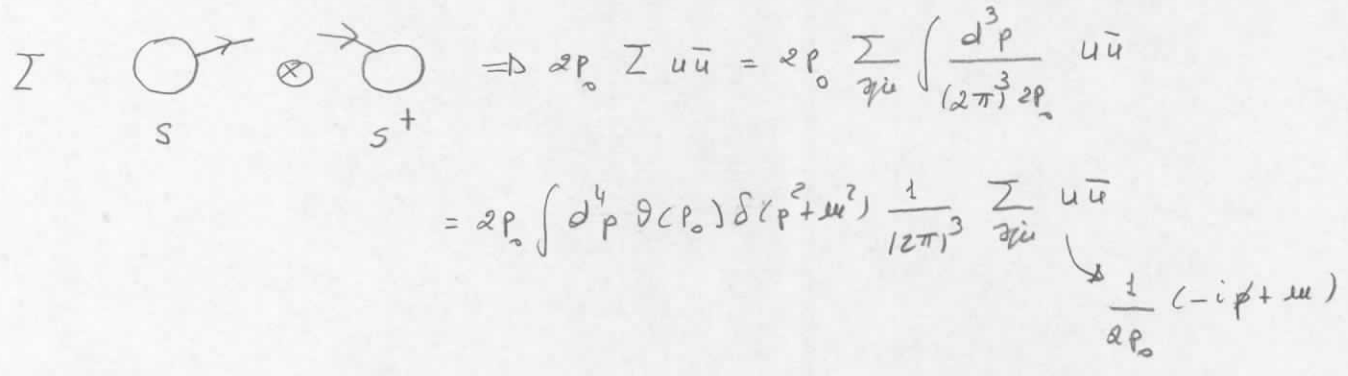 Σ ⊗ ⇒ 2p₀ Σ uū = 2p₀ Σ_spin ∫ d³p/((2π)³ 2p₀) uū
S S†
= 2p₀ ∫ d⁴p θ(p₀) δ(p²+m²) 1/(2π)³ Σ_spin uū
1/(2p₀) (-ip̸ + m)